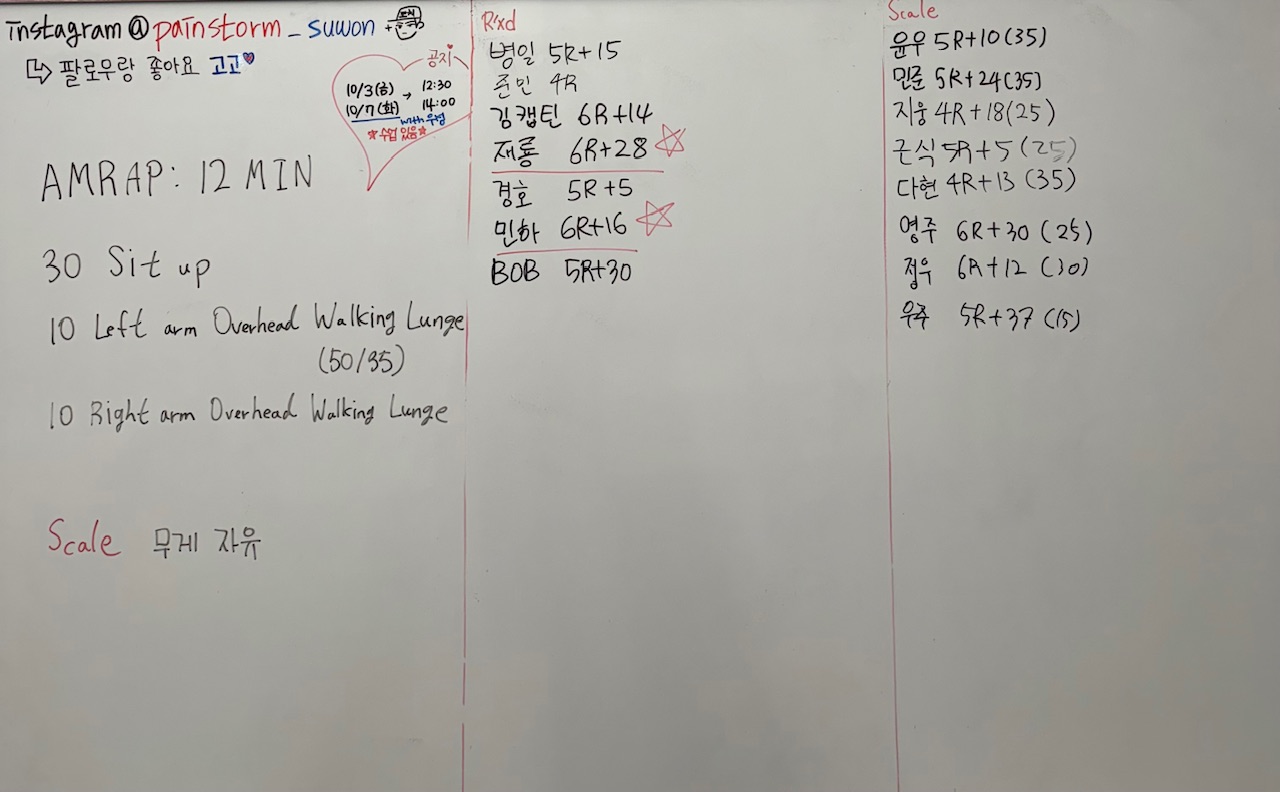 instagram@painstorm_suwon +
팔로우랑 좋아요 고고
공지
10/3(금) → 12:30
10/7(화) 14:00
with 우성
☆수업 있음☆
AMRAP: 12 MIN
30 Sit up
10 Left arm Overhead Walking Lunge
(50/35)
10 Right arm Overhead Walking Lunge
Scale 무게 자유
R'xd
병일 5R+15
준민 4R
김캡틴 6R+14
재룡 6R+28
경호 5R+5
민하 6R+16
BOB 5R+30
Scale
윤우 5R+10(35)
민준 5R+24(35)
지웅 4R+18(25)
근식 5R+5(25)
다현 4R+13 (35)
영주 6R+30 (25)
정우 6R+12 (30)
우주 5R+37 (15)